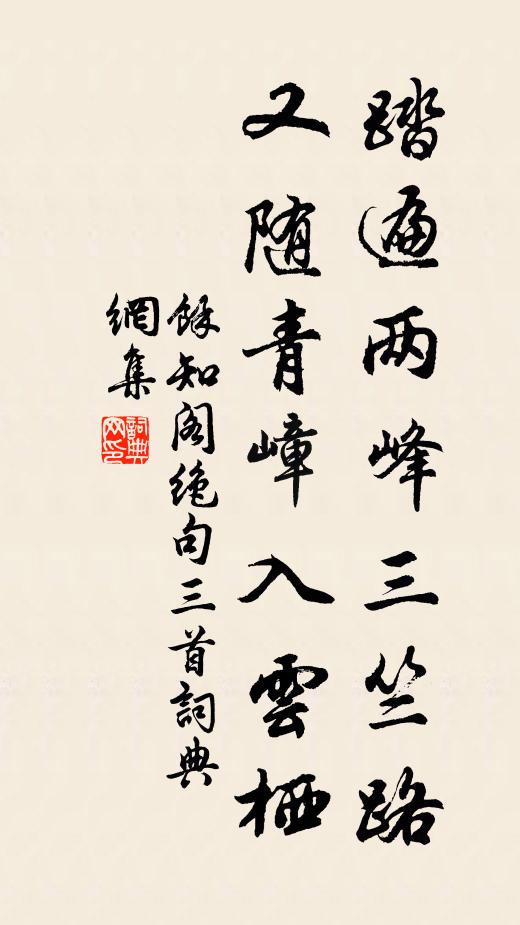 踏遍两峰三竺路
又随青嶂入雲栖
餘知阁绝句三首詞典
網集
詞典
网印